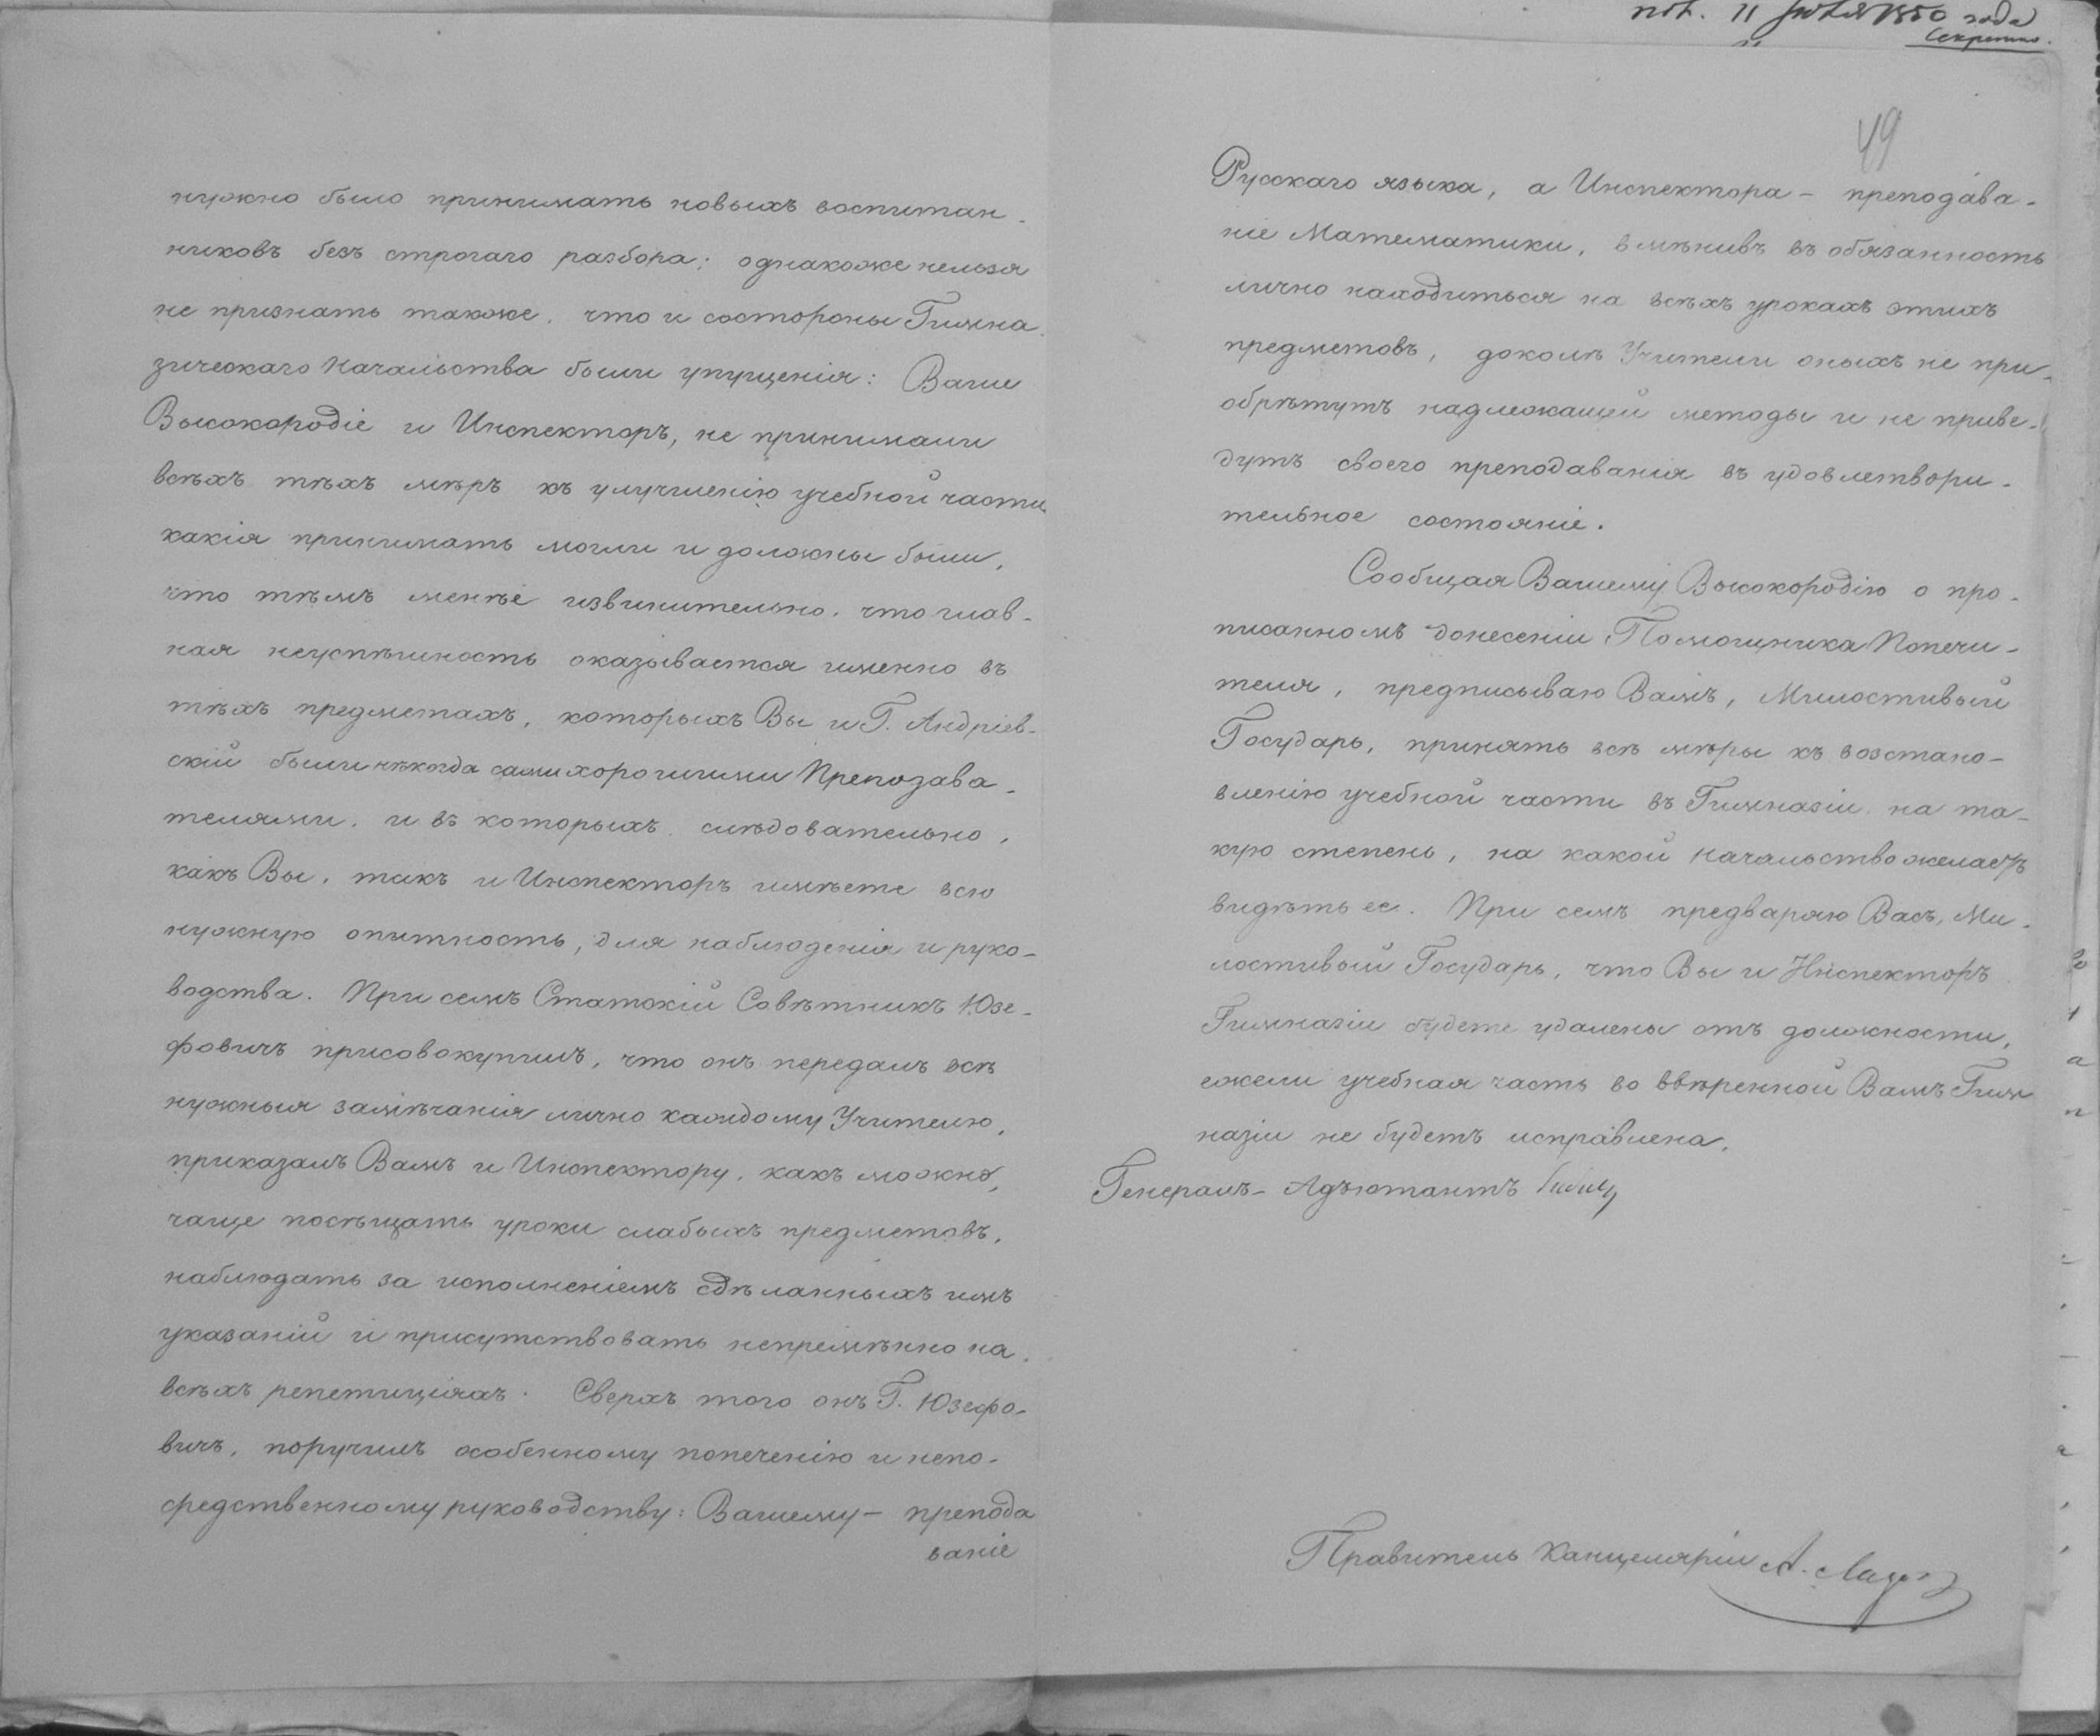 нужно было принимать новыхъ воспитан-
никовъ безъ строгаго разбора; однакоже нельзя
не признать также, что и состороны Гимна-
зическаго Начальства были упущенія: Ваше
Высокородіе и Инспекторъ, не принимали
всѣхъ тѣхъ мѣръ къ улучшенію учебной части,
какія принимать могли и должны были,
что тѣмъ менѣе извинительно, что глав-
ная неуспѣшность оказывается именно въ
тѣхъ предметахъ, которыхъ Вы и Г. Андріев-
скій были нѣкогда сами хорошими Препозава-
телями, и въ которыхъ, слѣдовательно,
какъ Вы, такъ и Инспекторъ имѣете всю
нужную опытность, для наблюденія и руко-
водства. При семъ Статскій Совѣтникъ Юзе-
фовичъ присовокупилъ, что онъ передалъ всѣ
нужныя замѣчанія лично каждому Учителю,
приказалъ Вамъ и Инспектору, какъ можно,
чаще посѣщать уроки слабыхъ предметовъ,
наблюдать за исполненіемъ сдѣланныхъ имъ
указаній и присутствовать непремѣнно на
всѣхъ репетиціяхъ. Сверхъ того онъ Г. Юзефо-
вичъ, поручилъ особенному попеченію и непо-
средственному руководству: Вашему — препода
ваніе
11 Іюля 1850 года
Секретно.
49
Русскаго языка, а Инспектора — преподава-
ніе Математики, вмѣнивъ въ обязанность
лично находиться на всѣхъ урокахъ этихъ
предметовъ, доколѣ Учители оныхъ не при-
обрѣтутъ надлежащей методы и не приве-
дутъ своего преподаванія въ удовлетвори-
тельное состояніе.
Сообщая Вашему Высокородію о про-
писанномъ донесеніи Помощника Попечи-
теля, предписываю Вамъ, Милостивый
Государь, принять всѣ мѣры къ возстано-
вленію учебной части въ Гимназіи на та-
кую степень, на какой начальство желаетъ
видѣть ее. При семъ предваряю Васъ, Ми-
лостивый Государь, что Вы и Инспекторъ
Гимназіи будете удалены отъ должности,
ежели учебная часть во ввѣренной Вамъ Гим
назіи не будетъ исправлена.
Генералъ-Адъютантъ
Правитель Канцеляріи А.